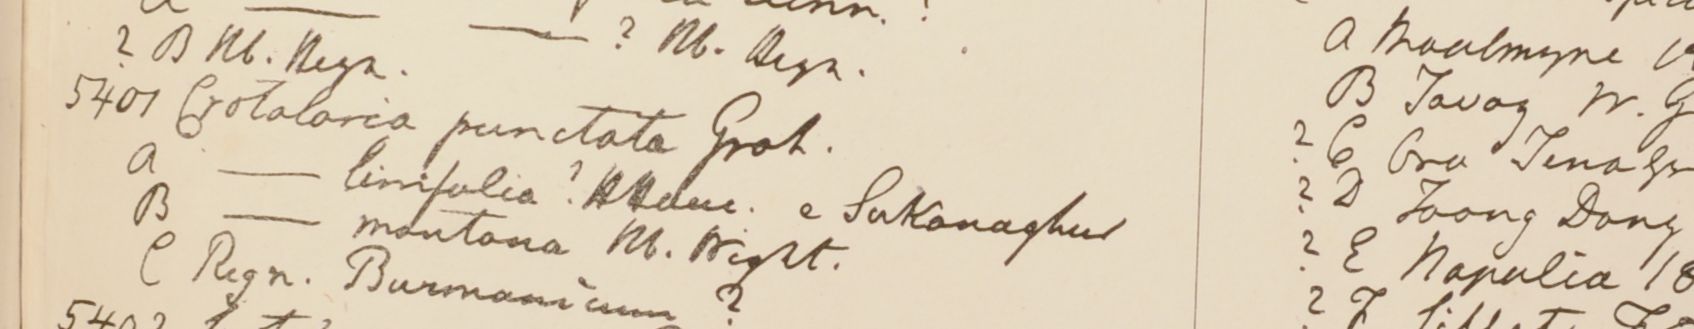 ? B Hb. Heyn. ? Hb. Heyn.
5401 Crotalaria punctata Grah.
a — linifolia? HHam. e Sukanaghur
B — montana Hb. Wight.
C Regn. Burmanicum ?
a Moalmyne
B Tavoy W. G
? C Ora Tenass
? D Toong Dong
? E Napalia 18
? F